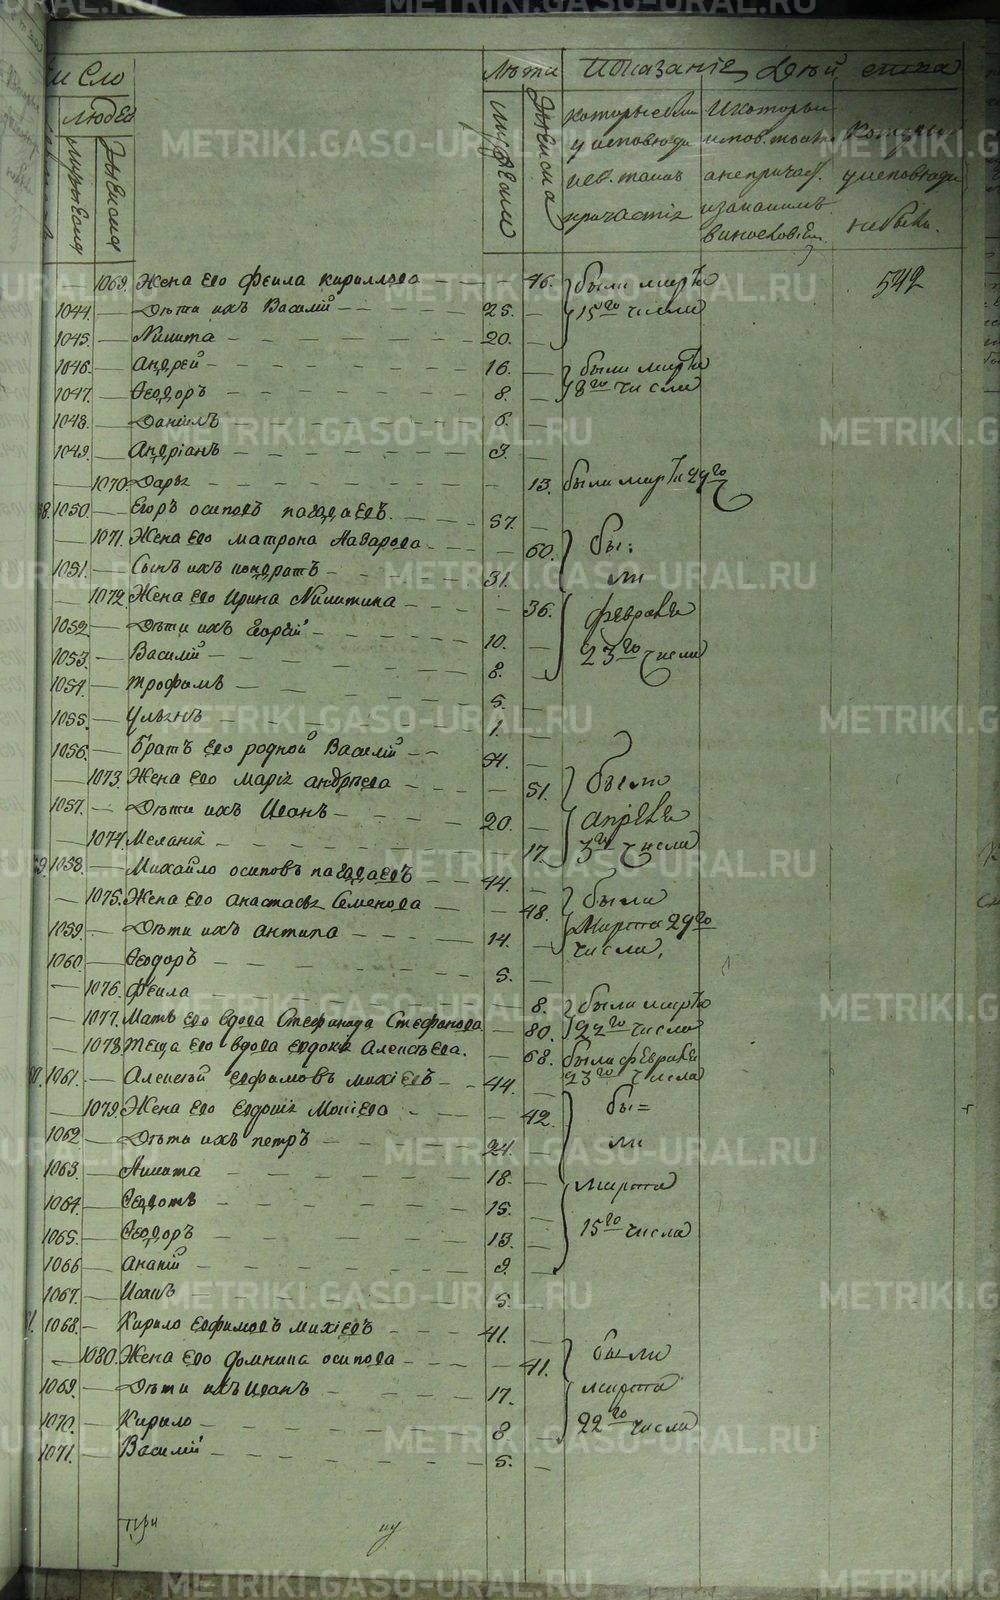 Число Лѣта Показанїе Дѣйства
людей
мужеска
женска
мужеска
женска
которые были у исповеди и св. таинъ причастїя
И которыи исповѣдались а не причаст. и за какимъ винословїем.
Которыи у исповеди не были.
1069. Жена его Феила Кириллова 46. были марта 542
1044. Дѣти ихъ Василїй 25. 15го числа
1045. Никита 20.
1046. Андрей 16. были марта
1047. Ѳеодоръ 8. 18го числа
1048. Данїилъ 6.
1049. Андрїанъ 3.
1070. Дарья 13. были марта 29го
1050. Егоръ Осиповъ 57.
1071. Жена его Матрона Назарова 60. бы:
1051. Сынъ ихъ Кондратъ 31. ли
1072. Жена его Ирина Никитина 36. февраля
1052. Дѣти ихъ Георгїй 10. 23го числа
1053. Василїй 8.
1054. Трофимъ 5.
1055. Ульянъ 1.
1056. Братъ его родной Василїй 54.
1073. Жена его Марїя Андрѣева 51. были
1057. Дѣти ихъ Иванъ 20. апреля
1074. Меланїя 17. 3го числа
1058. Михайло Осиповъ 44.
1075. Жена его Анастасья Семенова 48. были
1059. Дѣти ихъ Антипа 14. Марта 29го
1060. Ѳеодоръ 5. числа,
1076. Феила 8. были марта
1077. Мать его вдова Стефанида Стефанова 80. 22го числа
1078. Теща его вдова Евдокїя Алексѣева. 68. были февраля
1061. Алексѣй Евфимовъ Михїевъ 44. 23го числа
1079. Жена его Евдокїя Мокїева 42. бы=
1062. Дѣти ихъ Петръ 24. ли
1063. Никита 18. марта
1064. Ѳедотъ 15. 15го числа
1065. Ѳеодоръ 13.
1066. Ананїй 9.
1067. Иванъ 5.
1068. Кирило Евфимовъ Михїевъ 41.
1080. Жена его Домника Осипова 41. были
1069. Дѣти ихъ Иванъ 17. марта
1070. Кирило 8. 22го числа
1071. Василїй 5.
METRIKI.GASO-URAL.RU